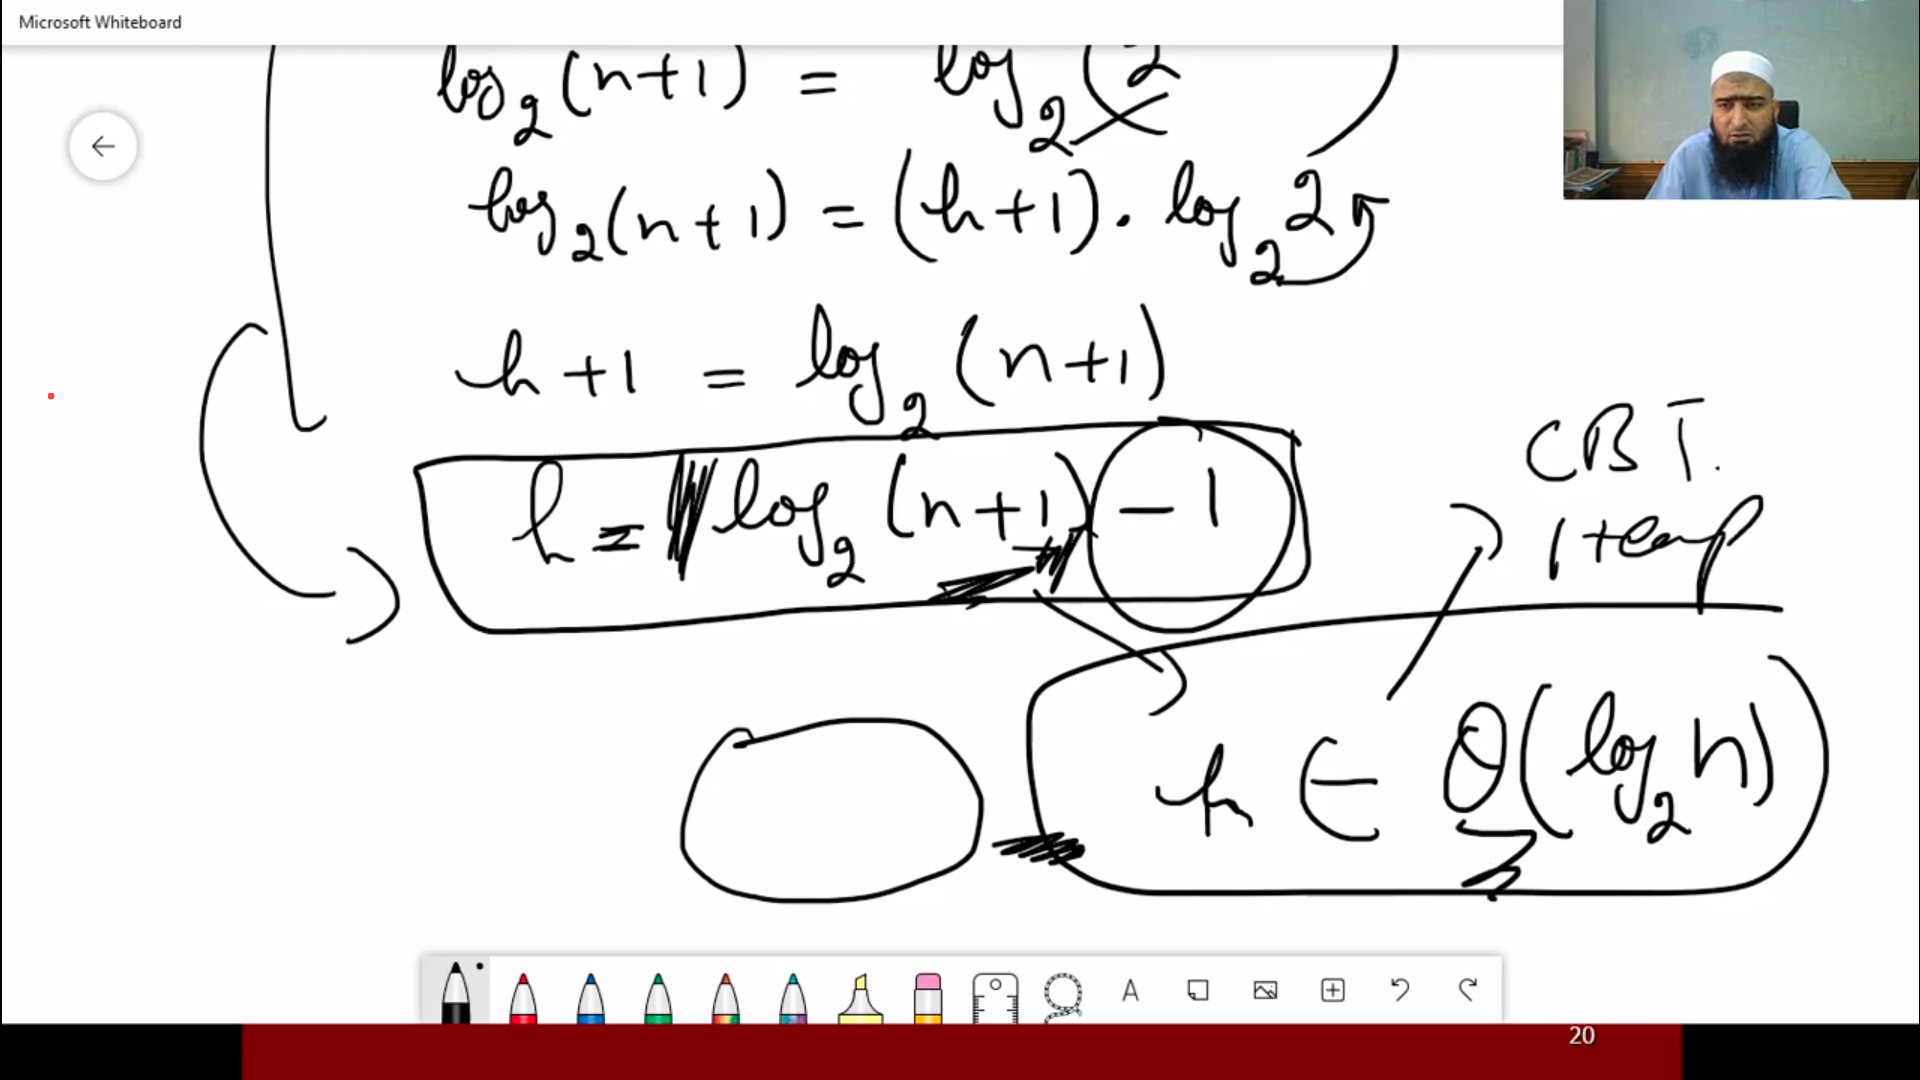 Microsoft Whiteboard
log₂(n+1) = log₂(2
log₂(n+1) = (h+1) . log₂2
h+1 = log₂(n+1)
h = log₂(n+1) -1
CBT.
h ∈ θ(log₂n)
A
20